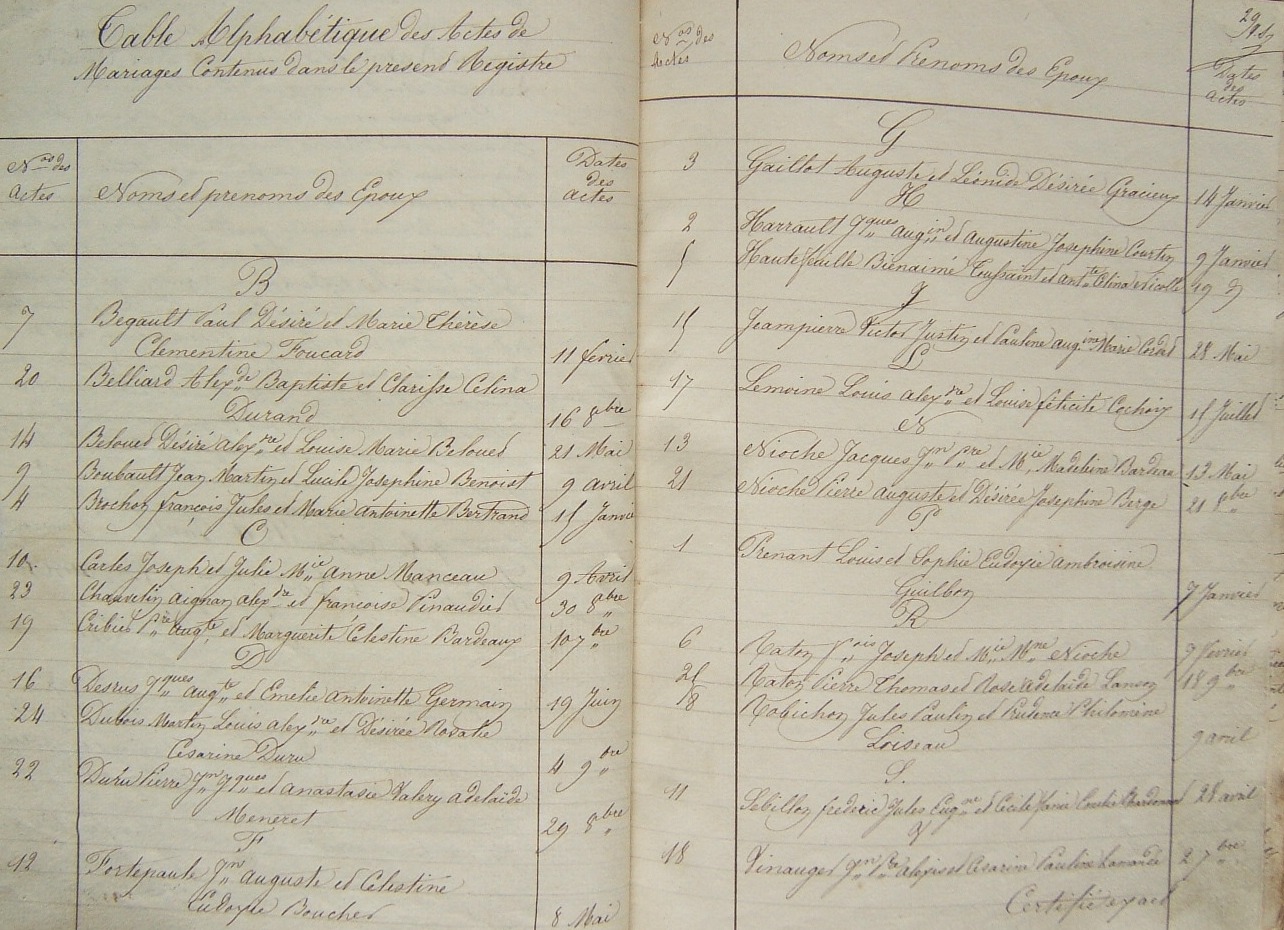 Table Alphabétique des Actes de
Mariages Contenus dans le present Registre
Nos des Actes
Noms et prenoms des Epoux
Dates des actes
B
7 Begault Paul Désiré et Marie Thérèse
Clementine Foucard 11 février
20 Belliard Alexdre Baptiste et Clarisse Celina
Durand 16 8bre
14 Beloued Désiré alexdre et Louise Marie Beloued 21 Mai
9 Boubault Jean Martin et Lucile Josephine Benoist 9 avril
4 Brochon françois Jules et Marie Antoinette Bertrand 15 Janvier
C
10 Cartes Joseph et Julie Mie Anne Manceau 9 Avril
23 Chauvelin aignan alexdre et françoise Pinaudier 30 8bre
19 Cribier Pre Augte et Marguerite Celestine Bardeaux 10 7bre
D
16 Desrus Jques augte et Emelie antoinette Germain 19 Juin
24 Dubois Martin Louis alexdre et Désirée Rosalie
Cesarine Duru 4 9bre
22 Duru Pierre Jn Jques et anastasie Valery adelaïde
Meneret 29 8bre
F
12 Fortepaule Jn auguste et Celestine
Eudoxie Boucher 8 Mai
29
Nos des Actes
Noms et Prenoms des Epoux
Dates des actes
G
3 Gaillot Auguste et Léonide Désirée Gracieux 14 Janvier
H
2 Harrault Jques augin et Augustine Josephine Courtin 9 Janvier
5 Hautefeuille Bienaimé Toussaint et antte Celina Nicolle 19 d
J
15 Jeampierre Victor Justin et Pauline augine Marie 28 Mai
L
17 Lemoine Louis alexdre et Louise félicité Cochoix 15 Juillet
N
13 Nioche Jacques Jn Pre et Mie Madeleine Bardeau 13 Mai
21 Nioche Pierre auguste et Désirée Josephine Berge 21 8bre
P
1 Prenant Louis et Sophie Eudoxie ambroisine
Guillon 7 Janvier
R
6 Raton fois Joseph et Mie Mne Nioche 7 février
25 Raton Pierre Thomas et Rose adelaïde Lanson 18 9bre
8 Robichon Jules Paulin et Prudence Philomène
Loiseau 9 avril
S
11 Sebillon frederic Jules Eugne et Cecile Chardonneau 28 avril
V
18 Vinauger Jn Bte Alexis et Cesarine Pauline Lamandé 2 7bre
Certifié exact